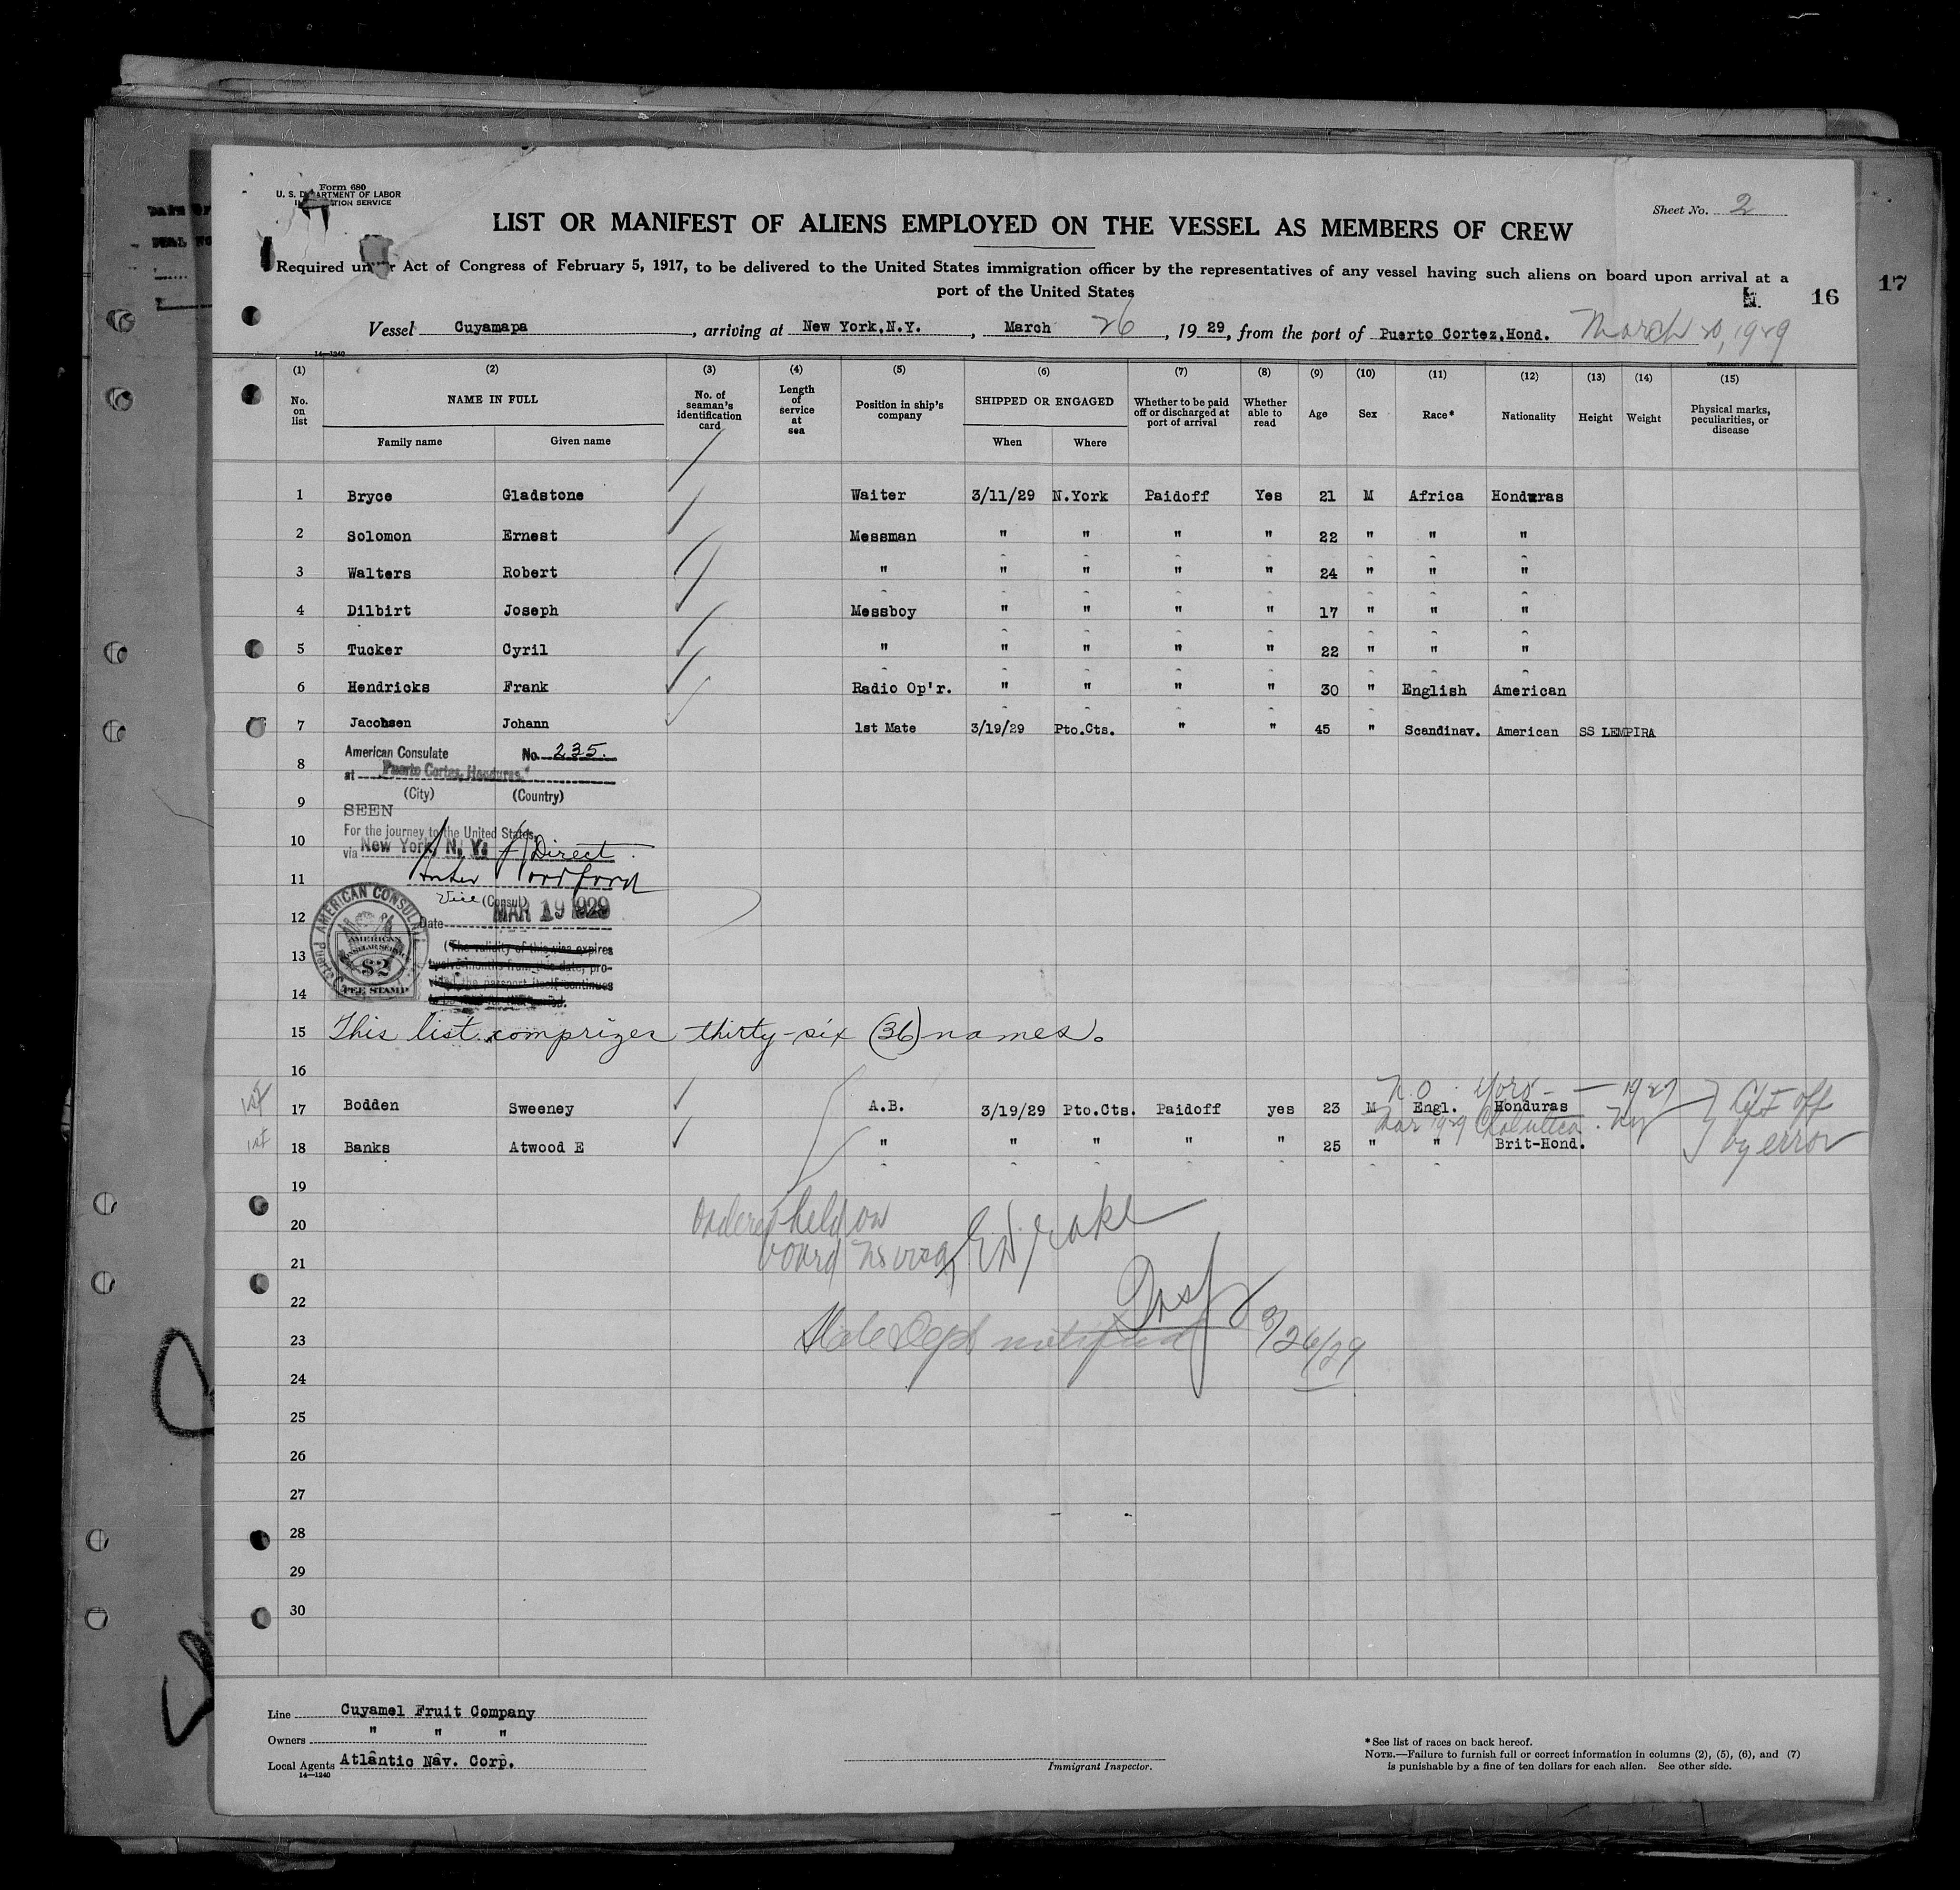 Form 680
U. S. DEPARTMENT OF LABOR
Sheet No. 2
LIST OR MANIFEST OF ALIENS EMPLOYED ON THE VESSEL AS MEMBERS OF CREW
Required under Act of Congress of February 5, 1917, to be delivered to the United States immigration officer by the representatives of any vessel having such aliens on board upon arrival at a
port of the United States
16 17
Vessel Cuyamapa, arriving at New York,N.Y., March 26, 1929, from the port of Puerto Cortez,Hond. March 20, 1929
14—1240
(1) (2) (3) (4) (5) (6) (7) (8) (9) (10) (11) (12) (13) (14) (15)
No. on list NAME IN FULL Family name Given name No. of seaman's identification card Length of service at sea Position in ship's company SHIPPED OR ENGAGED When Where Whether to be paid off or discharged at port of arrival Whether able to read Age Sex Race* Nationality Height Weight Physical marks, peculiarities, or disease
1 Bryce Gladstone Waiter 3/11/29 N.York Paidoff Yes 21 M Africa Honduras
2 Solomon Ernest Messman " " " " 22 " " "
3 Walters Robert " " " " " 24 " " "
4 Dilbirt Joseph Messboy " " " " 17 " " "
5 Tucker Cyril " " " " " 22 " " "
6 Hendricks Frank Radio Op'r. " " " " 30 " English American
7 Jacobsen Johann 1st Mate 3/19/29 Pto.Cts. " " 45 " Scandinav. American SS LEMPIRA
American Consulate No. 235.
8 at Puerto Cortes, Honduras.
(City) (Country)
9 SEEN
For the journey to the United States,
10 via New York, N. Y. Direct
11
Vice (Consul)
12 Date MAR 19 1929
AMERICAN CONSULAR SERVICE $2 FEE STAMP
13 (The validity of this visa expires
twelve months from this date, pro-
vided the passport itself continues
14
15 This list comprizes thirty-six (36) names.
16
N.O. Yoro - - 1927
1st 17 Bodden Sweeney A.B. 3/19/29 Pto.Cts. Paidoff yes 23 M Engl. Honduras
Mar 1929 Choluteca. NY
left off
1st 18 Banks Atwood E " " " " " 25 " " Brit-Hond.
by error
19
Ordered held on
20
board no visa
21
22
23 State Dept notified 3/26/29
24
25
26
27
28
29
30
Line Cuyamel Fruit Company
Owners " " "
Local Agents Atlantic Nav. Corp.
14—1240
Immigrant Inspector.
* See list of races on back hereof.
NOTE.—Failure to furnish full or correct information in columns (2), (5), (6), and (7)
is punishable by a fine of ten dollars for each alien. See other side.